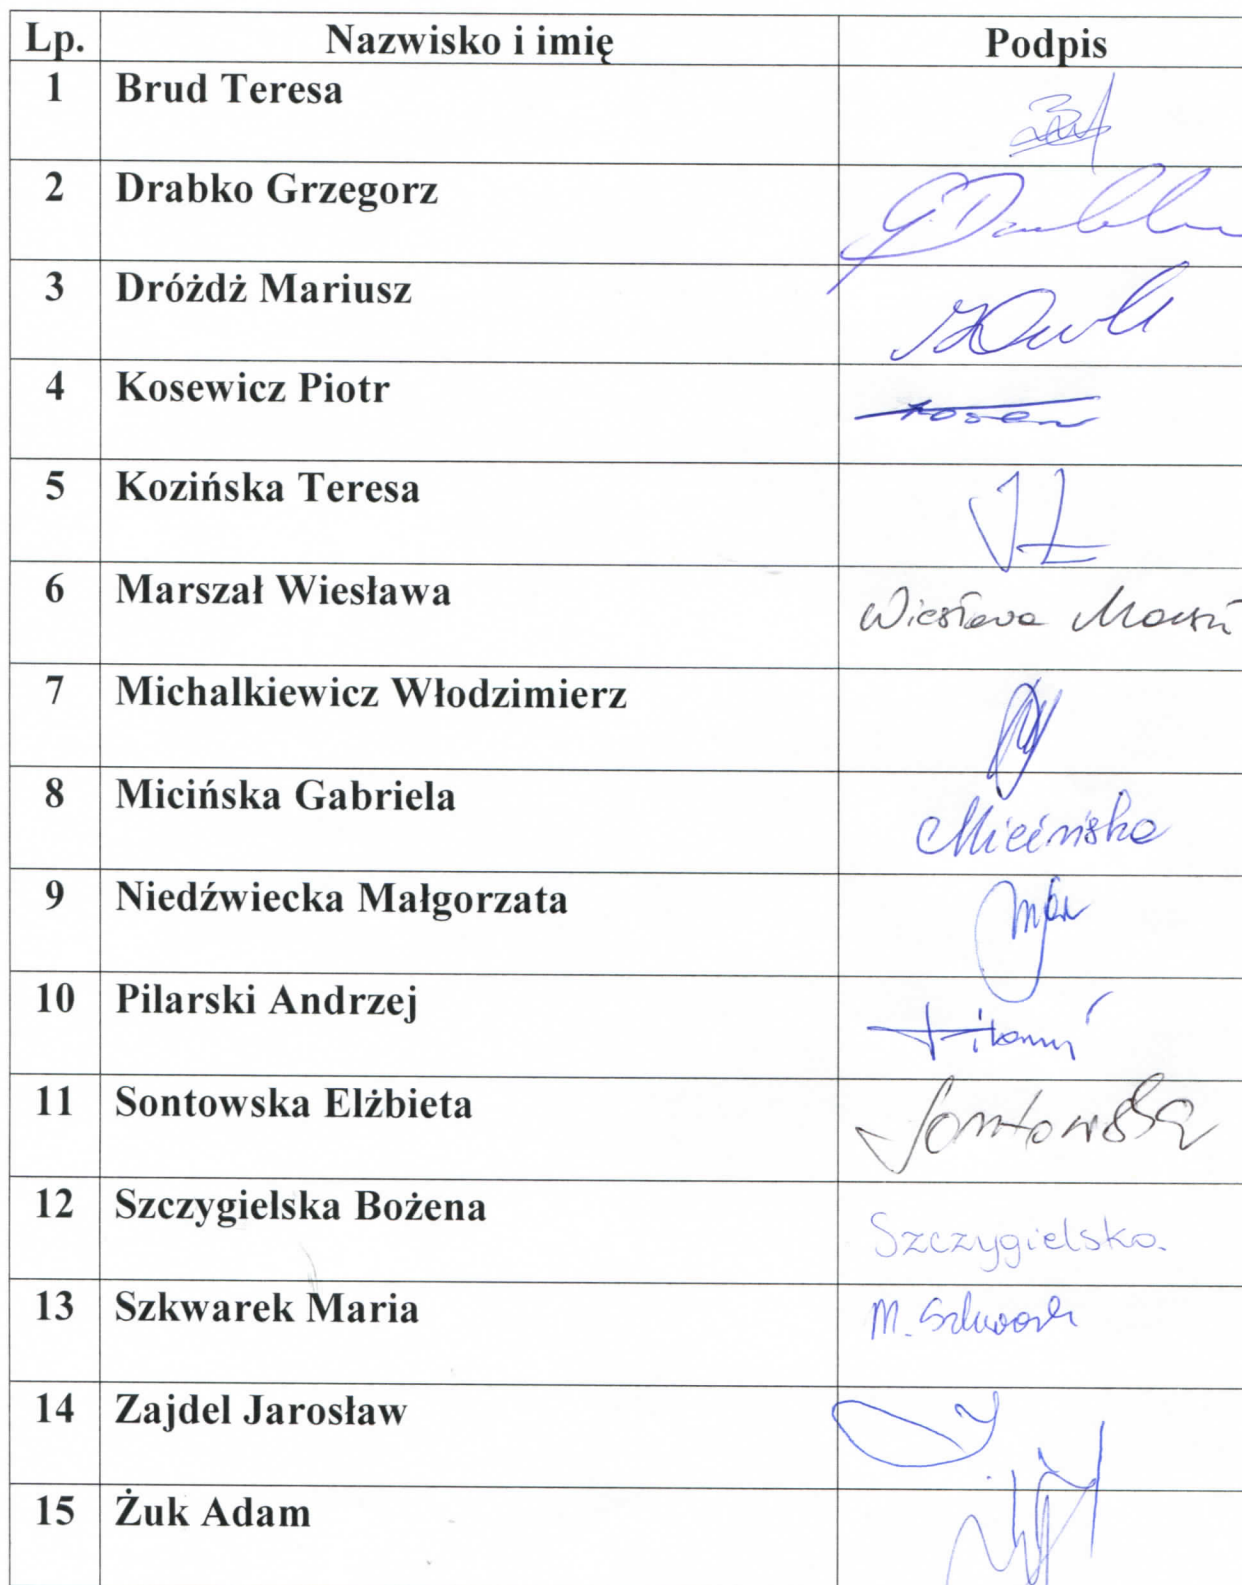 Lp. Nazwisko i imię Podpis
1 Brud Teresa
2 Drabko Grzegorz
3 Dróżdż Mariusz
4 Kosewicz Piotr
5 Kozińska Teresa
6 Marszał Wiesława Wiesława
7 Michalkiewicz Włodzimierz
8 Micińska Gabriela Micińska
9 Niedźwiecka Małgorzata
10 Pilarski Andrzej
11 Sontowska Elżbieta Sontowska
12 Szczygielska Bożena Szczygielska.
13 Szkwarek Maria M. Szkwarek
14 Zajdel Jarosław
15 Żuk Adam